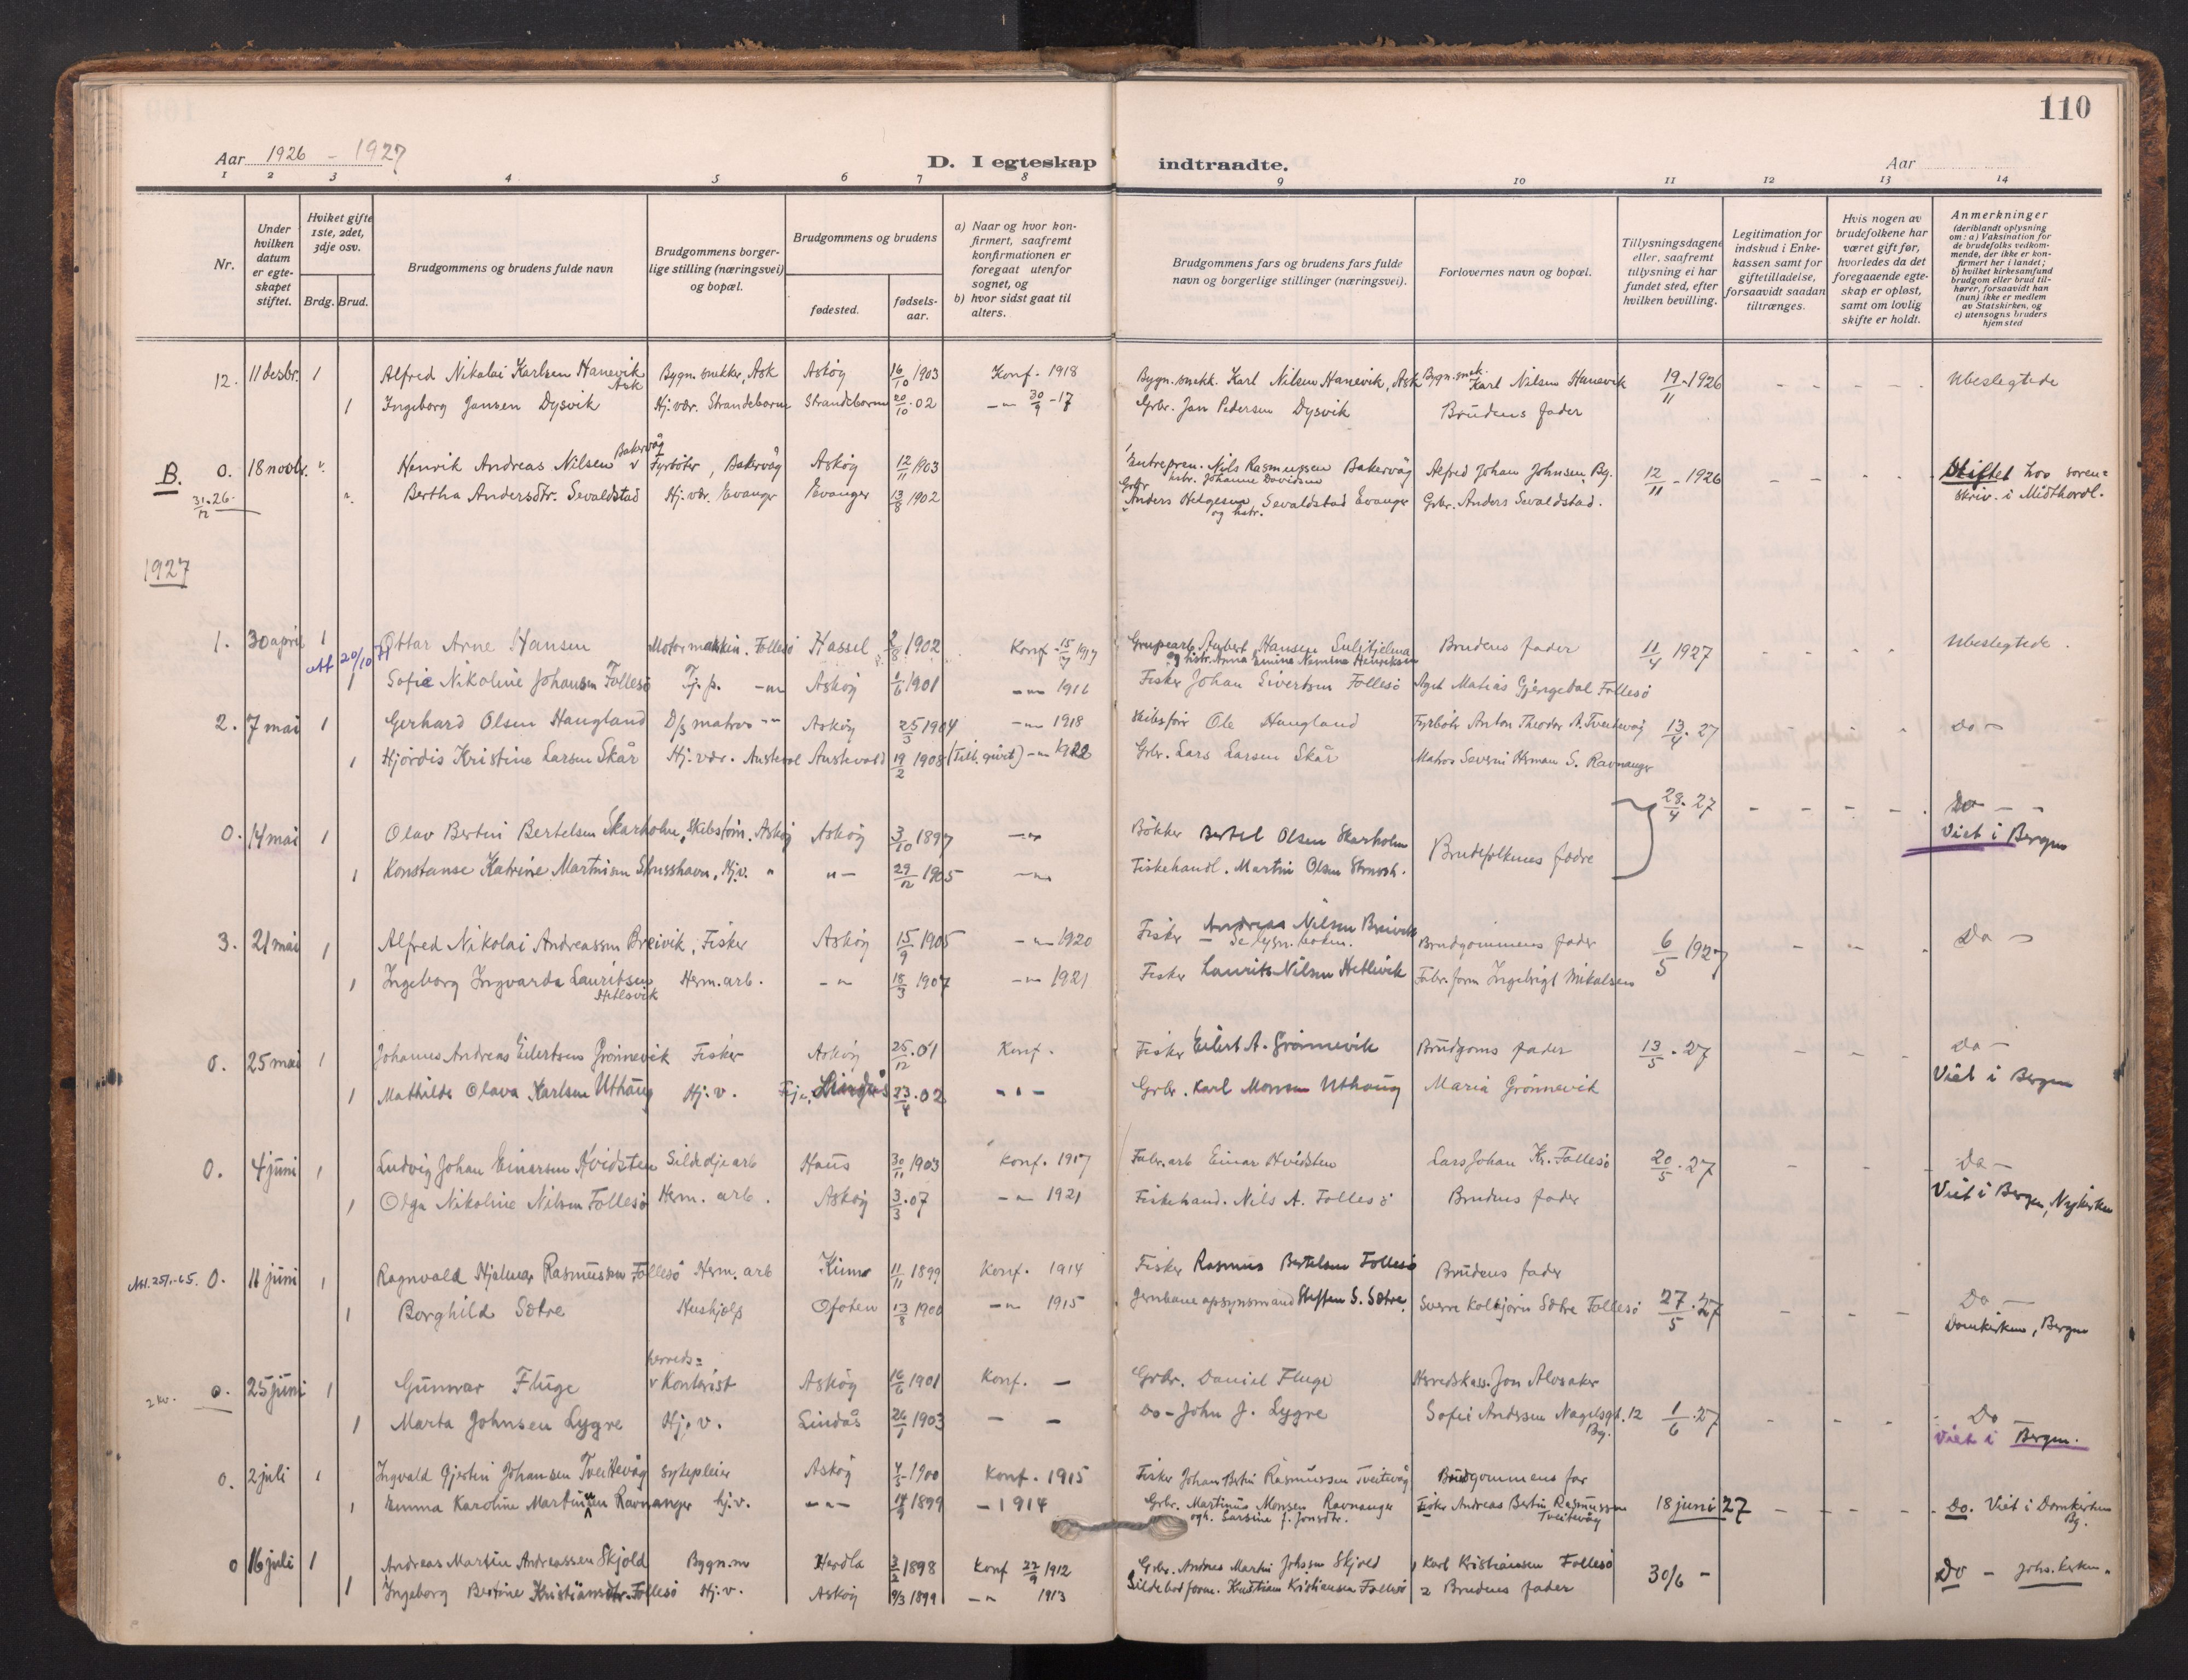 110
Aar 1926 - 1927
D. I egteskap indtraadte.
Aar
1 2 3 4 5 6 7 8 9 10 11 12 13 14
Nr.
Under hvilken datum er egteskapet stiftet.
Hvilket gifte 1ste, 2det, 3dje osv.
Brdg. Brud.
Brudgommens og brudens fulde navn
Brudgommens borgerlige stilling (næringsvei) og bopæl.
Brudgommens og brudens
fødested.
fødselsaar.
a) Naar og hvor konfirmert, saafremt konfirmationen er foregaat utenfor sognet, og
b) hvor sidst gaat til alters.
Brudgommens fars og brudens fars fulde navn og borgerlige stillinger (næringsvei).
Forlovernes navn og bopæl.
Tillysningsdagene eller, saafremt tillysning ei har fundet sted, efter hvilken bevilling.
Legitimation for indskud i Enkekassen samt for giftetilladelse, forsaavidt saadan tiltrænges.
Hvis nogen av brudefolkene har været gift før, hvorledes da det foregaaende egteskap er opløst, samt om lovlig skifte er holdt.
Anmerkninger (deriblandt oplysning om: a) Vaksination for de brudefolks vedkommende, der ikke er konfirmert her i landet; b) hvilket kirkesamfund brudgom eller brud tilhører, forsaavidt han (nun) ikke er medlem av Statskirken, og c) utensogns bruders hjemsted
12. 11 desbr. 1 Alfred Nikolai Karlsen Hanevik Ask Bygn. snekker, Ask Askøy 16/10 1903 Konf. 1918 Bygn. snekk. Karl Nilsen Hanevik, Ask Bygn. snek. Karl Nilsen Hanevik 19/11 - 1926 - - - - Ubeslegtede
1 Ingeborg Jansen Dysvik Hj. vær. Strandebarm Strandebarm 20/10 - 02 - " 30/9 - 17 Grbr. Jan Pedersen Dysvik Brudens fader
B. 0. 18 novbr. Henrik Andreas Nilsen Bakervåg Fyrbøter, Bakervåg Askøy 12/11 1903 Entrepren. Nils Rasmussen Bakervåg hstr. Johanne Davidsen Alfred Johan Johnsen, Bg. 12/11 - 1926 - - - - Stiftet hos soren=
31/12 - 26. Bertha Andersdtr. Sevaldstad Hj. vær. Evanger Evanger 13/8 1902 Grbr Anders Helgesen Sevaldstad Evanger og hstr. Grbr. Anders Sevaldstad. skriv. i Midthordl.
1927
1. 30 april 1 Ottar Arne Hansen Motormaskin. Follesø Hassel 2/8 1902 Konf - 15/7 1917 Grubearb. Hansen Sulitjelma Brudens fader 11/4 1927 Ubeslegtede
Att 20/10 1 Sofie Nikoline Johansen Follesø Tj. p. - " Askøy 1/6 1901 - " 1916 Fisker Johan Sivertsen Follesø Agent Matias Gjengedal Follesø
2. 7 mai 1 Gerhard Olsen Haugland D/s matros - " Askøy 25/3 1904 - " 1918 Skibsfør Ole Haugland Fyrbøter Anton Theodor A. Tveitevåg 13/4 - 27 - - - - Do -
1 Hjørdis Kristine Larsen Skår Hj. vær. Austevol Austevold 19/2 1908 - " 1922 Grbr. Lars Larsen Skår Matros Severin Herman S. Ravnanger
0. 14 mai 1 Olav Bertin Bertelsen Skarholm, Skibstøm. Askøy Askøy 3/10 1897 - " Bøkker Bertel Olsen Skarholm Brudefolkenes fædre 28/4 - 27 - - - - Do - - Viet i Bergen
1 Konstanse Katrine Martinsen Skrusshavn, Hj. v. " " - 29/12 1905 - " Fiskehandl. Martin Olsen
3. 21 mai 1 Alfred Nikolai Andreassen Breivik, Fisker Askøy 15/9 1905 - " 1920 Fisker Andreas Nilsen Breivik Brudgommens fader 6/5 1927 - - - Do -
1 Ingeborg Ingvarda Lauritsen Hetlevik Herm. arb. - " 18/3 1907 - " 1921 Fisker Laurits Nilsen Hetlevik Fabr. form Ingebrigt Mikalsen
0. 25 mai 1 Johannes Andreas Eilertsen Grønnevik Fisker Askøy 25/12 - 01 Konf. Fisker Eilert A. Grønnevik Brudgoms fader 13/5 - 27 - - - Do -
1 Mathilde Olava Karlsen Uthaug Hj. v. Lindås 23/4 - 02 - " - Grbr. Karl Monsen Uthaug Maria Grønnevik Viet i Bergen
0. 4 juni 1 Ludvig Johan Einarsen Hvidsten Sildoljearb Haus 30/11 1903 Konf. 1917 Fabr. arb Einar Hvidsten Lars Johan Kr. Follesø 20/5 - 27 - - - Do -
1 Olga Nikoline Nilsen Follesø Herm. arb. Askøy 3/3 - 07 - " 1921 Fiskehand. Nils A. Follesø Brudens fader Viet i Bergen, Nykirken
Att. 25/1 - 65. 0. 11 juni 1 Ragnvald Hjalmar Rasmussen Follesø Herm. arb Kinn 11/11 1899 Konf. 1914 Fisker Rasmus Bertelsen Follesø Brudens fader
1 Borghild Sætre Hushjelp Ofoten 13/8 1900 - " 1915 Jernbaneopsynsmand Steffen S. Sætre Sverre Kolbjørn Sætre Follesø 27/5 - 27 - - - Do - Domkirken, Bergen
2 kv. 0. 25 juni 1 Gunnar Fluge herreds= Kontorist Askøy 16/6 1901 Konf. - Grbr. Daniel Fluge Herredskass. Jon Alvsaker
1 Marta Johnsen Lygre Hj. v. Lindås 26/1 1903 - - Do - John J. Lygre Sofie Andersen Nagelsgt. 12 Bg. 1/6 - 27 - - - - Do Viet i Bergen.
0. 2 juli 1 Ingvald Gjertin Johansen Tveitevåg sykepleier Askøy 4/5 - 1900 Konf. 1915 Fisker Johan Bertin Rasmussen Tveitevåg Brudgommens far
1 Emma Karoline Martinsen Ravnanger hj. v. - " - 14/9 1899 - 1914 Grbr. Martinus Monsen Ravnanger ogh. Larsine f. Jonsdtr. Fisker Andreas Bertin Rasmussen Tveitevåg 18 juni 27 - - - - Do. Viet i Domkirken Bg.
0 16 juli 1 Andreas Martin Andreassen Skjold Bygn. m Herdla 3/2 1898 Konf 22/9 1912 Grbr. Andreas Martin Johsen Skjold 1 Karl Kristiansen Follesø 30/6 - Do - Johs. kirken.
1 Ingeborg Bertine Kristiansdtr. Follesø Hj. v. Askøy 9/3 1899 - " 1913 Sildebodform. Kristian Kristiansen Follesø 2 Brudens fader